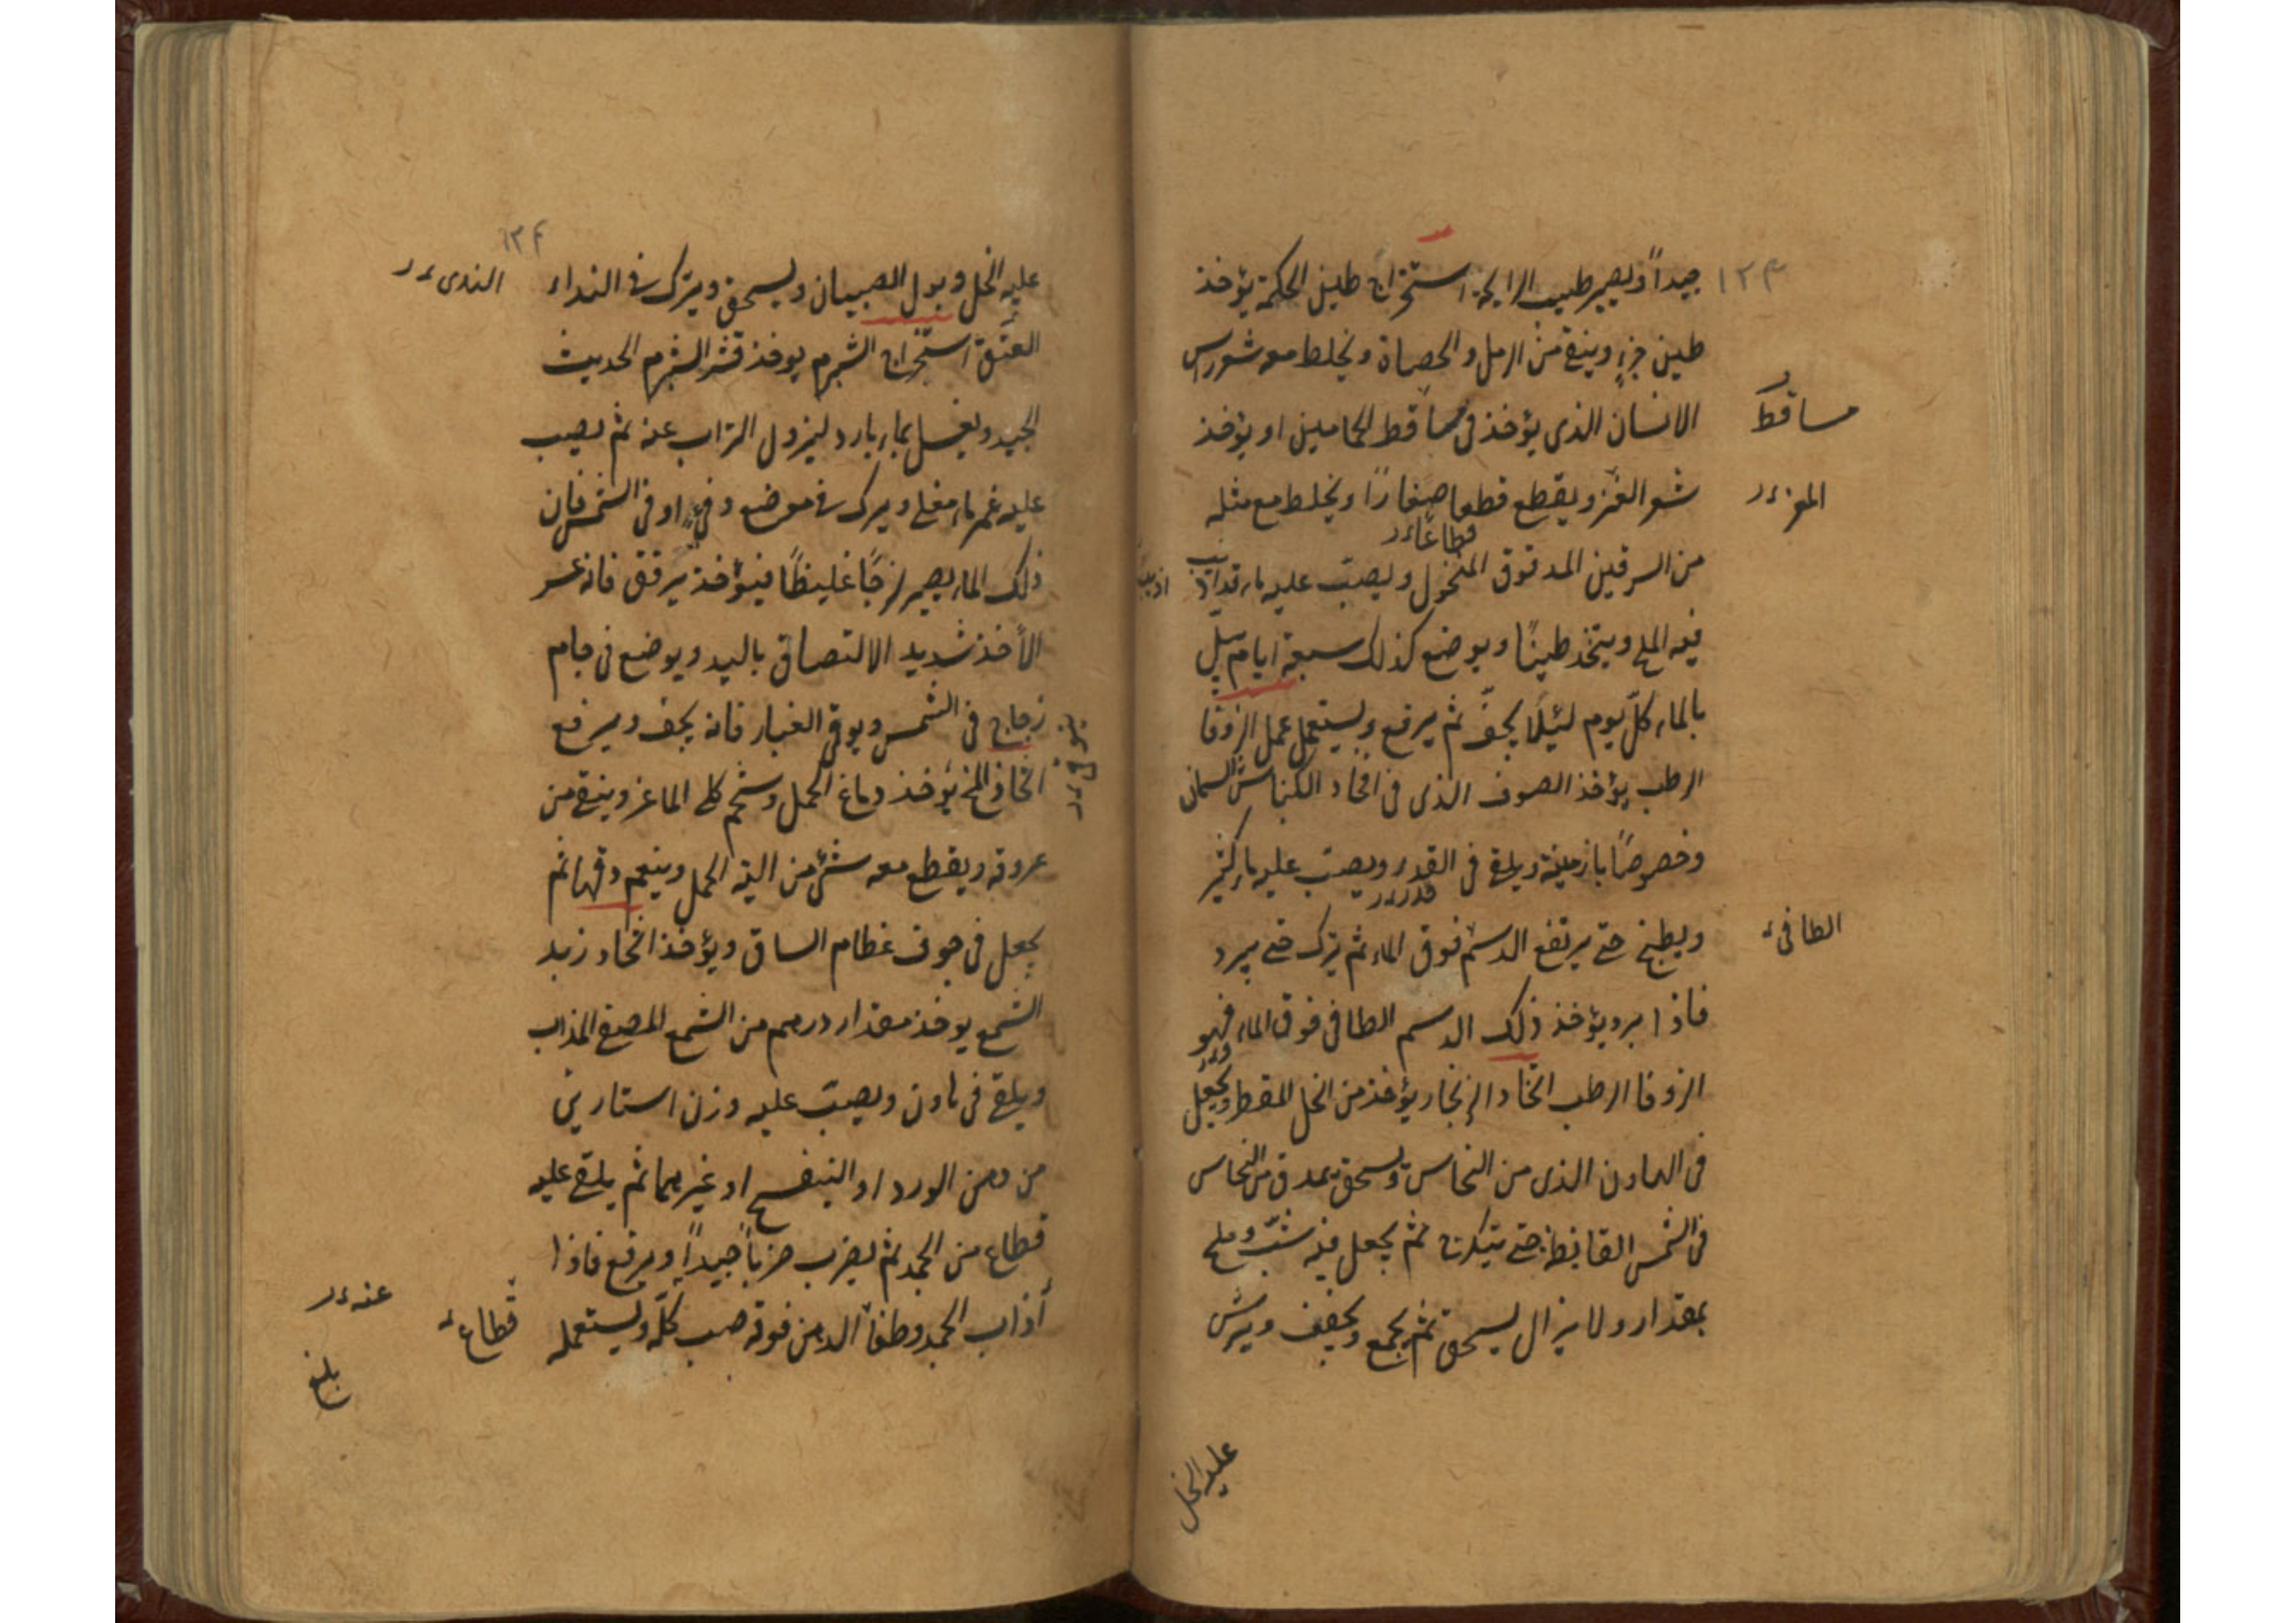 ١٢٣
جيداً ويصير طيب الرايحة استخراج طين الحكمة يؤخذ
طين جزء وينقى من الرمل والحصاة ويخلط معه شعر راس
الانسان الذى يؤخذ فى مساقط الحمامين او يؤخذ
مساقط
شعر العنز ويقطع قطعا صغاراً ويخلط مع مثله
المعز
قطاعا
من السرقين المدقوق المنخول ويصبّ عليه ماء قد اذيب
اذيب
فيه الملح ويتخذ طيناً ويوضع كذلك سبعة ايام يبلّ
بالماء كلّ يوم لئلا يجفّ ثم يرفع ويستعمل عمل الزوفا
الرطب يؤخذ الصوف الذى فى افخاد الكباش السمان
وخصوصاً بارمينة ويلقى فى القدر ويصبّ عليه ماء كثير
قدر
ويطبخ حتى يرتفع الدسم فوق الماء ثم يترك حتى يبرد
الطافى
فاذا برد يؤخذ ذلك الدسم الطافى فوق الماء فهو
الزوفا الرطب اتخاد الزنجار يؤخذ من الخل المقطر ويجعل
فى الهاون الذى من النحاس ويسحق بمدق من النحاس
فى الشمس القايظة حتى يتكرج ثم يجعل فيه شبّ وملح
بمقدار ولا يزال يسحق ثم يجمع ويجفف ويرش
عليه الخل
١٢٤
عليه الخل وبول الصبيان ويسحق ويترك فى النداء
الندى
العتق استخراج الشبرم يوخذ قشر الشبرم الحديث
الجيد ويغسل بماء بارد ليزول التراب عنه ثم يصب
عليه غمره ماء مغلى ويترك فى موضع دفى او فى الشمس فان
ذلك الماء يصير لزجاً غليظاً فيؤخذ برفق فانه عسر
الأخذ شديد الالتصاق باليد ويوضع فى جام
زجاج فى الشمس ويوقى الغبار فانه يجف ويرفع
اتخاذ المخ يؤخذ دماغ الحمل وشحم كلى الماعز وينقى من
عروقه ويقطع معه شئ من الية الحمل وينعم دقهما ثم
يجعل فى جوف عظام الساق ويؤخذ اتخاد زبد
الشمع يوخذ مقدار درهم من الشمع المصفى المذاب
ويلقى فى هاون ويصبّ عليه وزن استارين
من دهن الورد او البنفسج او غيرهما ثم يلقى عليه
قطاع من الجمد ثم يضرب ضرباً جيداً ويرفع فاذا
أذاب الجمد وطفا الدهن فوقه صب كلّه ويستعمله
قطاع
عنه
بلغ